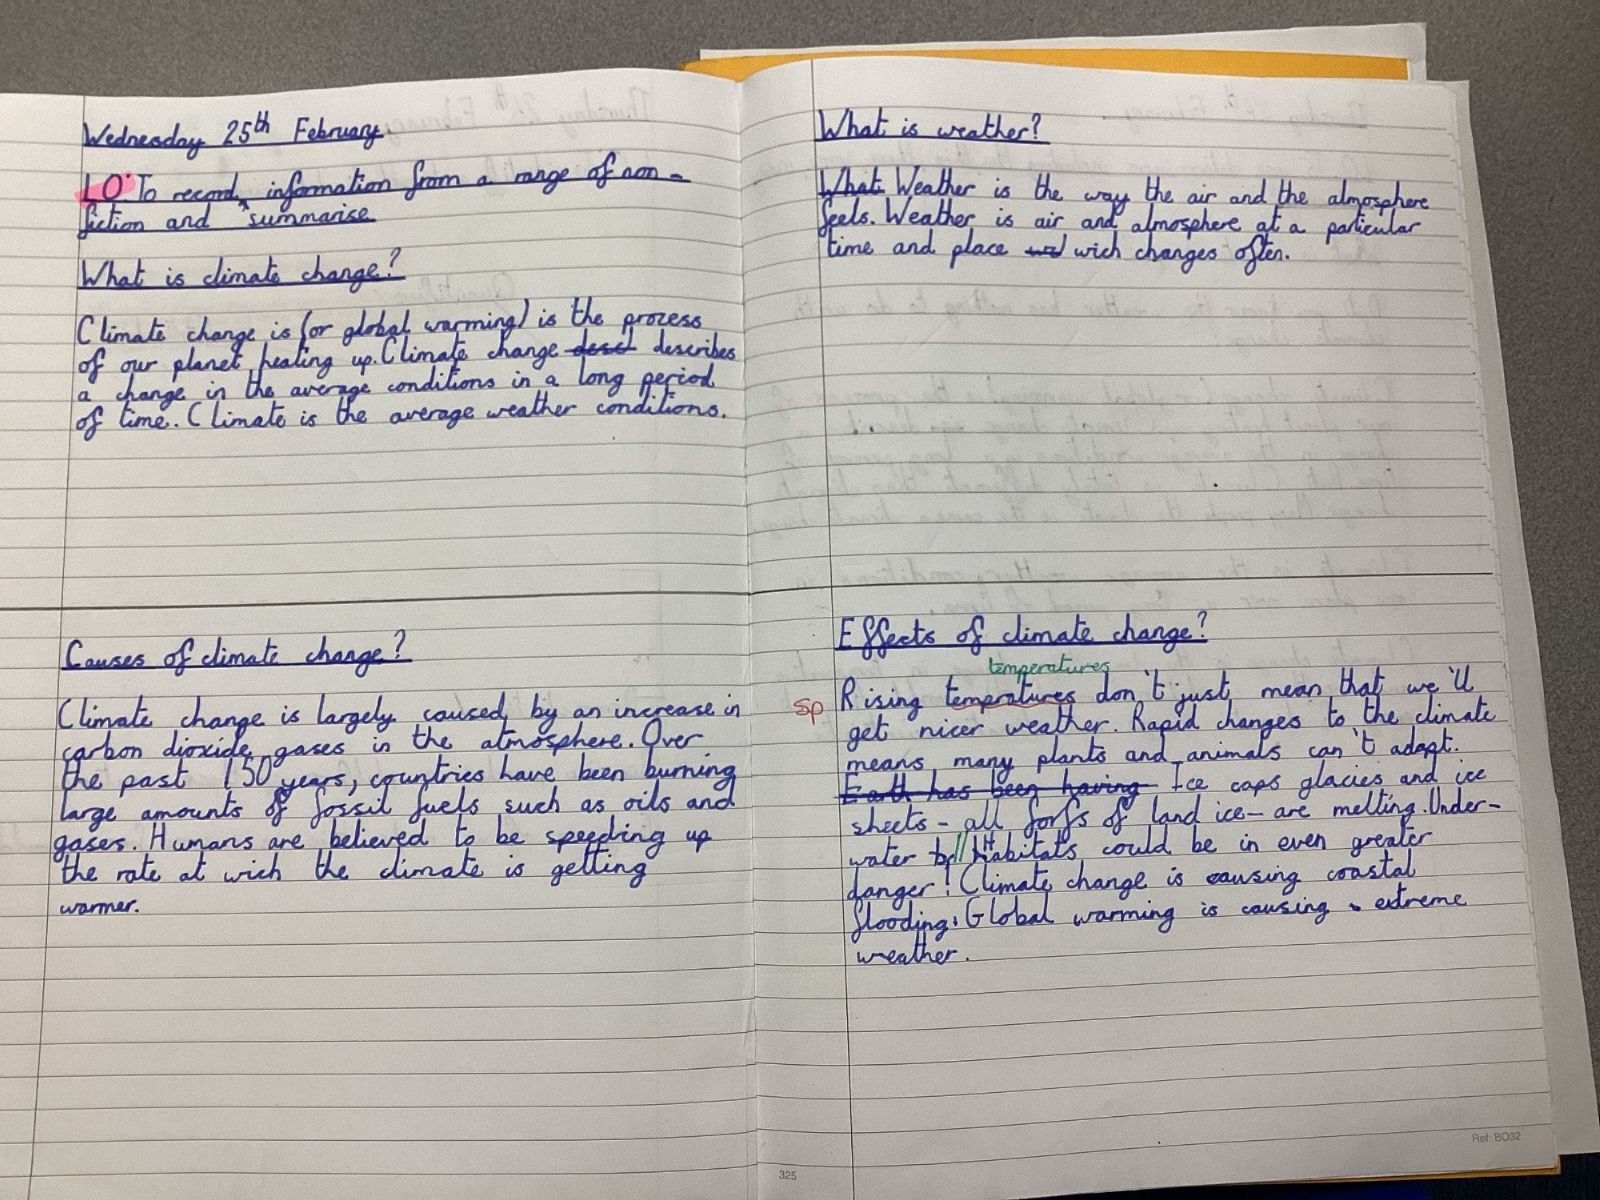 Wednesday 25th February
LO: To record, information from a range of non -
fiction and ^ summarise
What is climate change?
Climate change is (or global warming) is the process
of our planet heating up. Climate change desci describes
a change in the average conditions in a long period
of time. Climate is the average weather conditions.
What is weather?
What Weather is the way the air and the atmosphere
feels. Weather is air and atmosphere at a particular
time and place wich changes often.
Causes of climate change?
Climate change is largely caused by an increase in
carbon dioxide gases in the atmosphere. Over
the past 150 years, countries have been burning
large amounts of fossil fuels such as oils and
gases. Humans are believed to be speeding up
the rate at wich the climate is getting
warmer.
Effects of climate change?
temperatures
Sp Rising tempratures don't just mean that we'll
get nicer weather. Rapid changes to the climate
means many plants and animals can't adapt.
Earth has been having Ice caps glacies and ice
sheets - all forfs of land ice - are melting. Under-
water // Habitats could be in even greater
danger! Climate change is causing coastal
flooding. Global warming is causing extreme
weather.
325
Ref: BO32